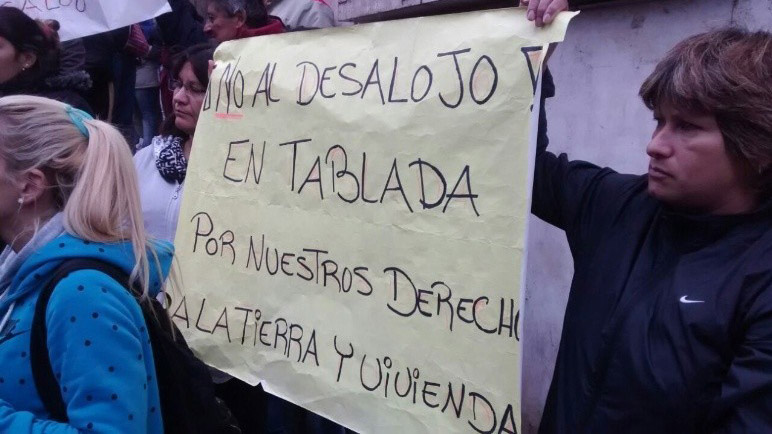 ¡NO AL DESALOJO!
EN TABLADA
POR NUESTROS DERECHO
A LA TIERRA Y VIVIENDA